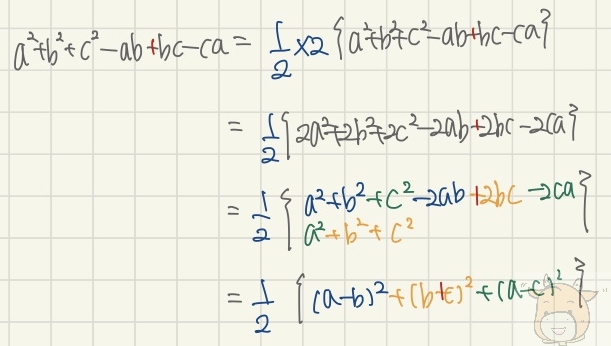 a²+b²+c²-ab+bc-ca = 1/2 ×2 {a²+b²+c²-ab+bc-ca}
= 1/2 {2a²+2b²+2c²-2ab+2bc-2ca}
= 1/2 { a²+b²+c²-2ab+2bc-2ca
a²+b²+c² }
= 1/2 { (a-b)²+(b+c)²+(a-c)² }